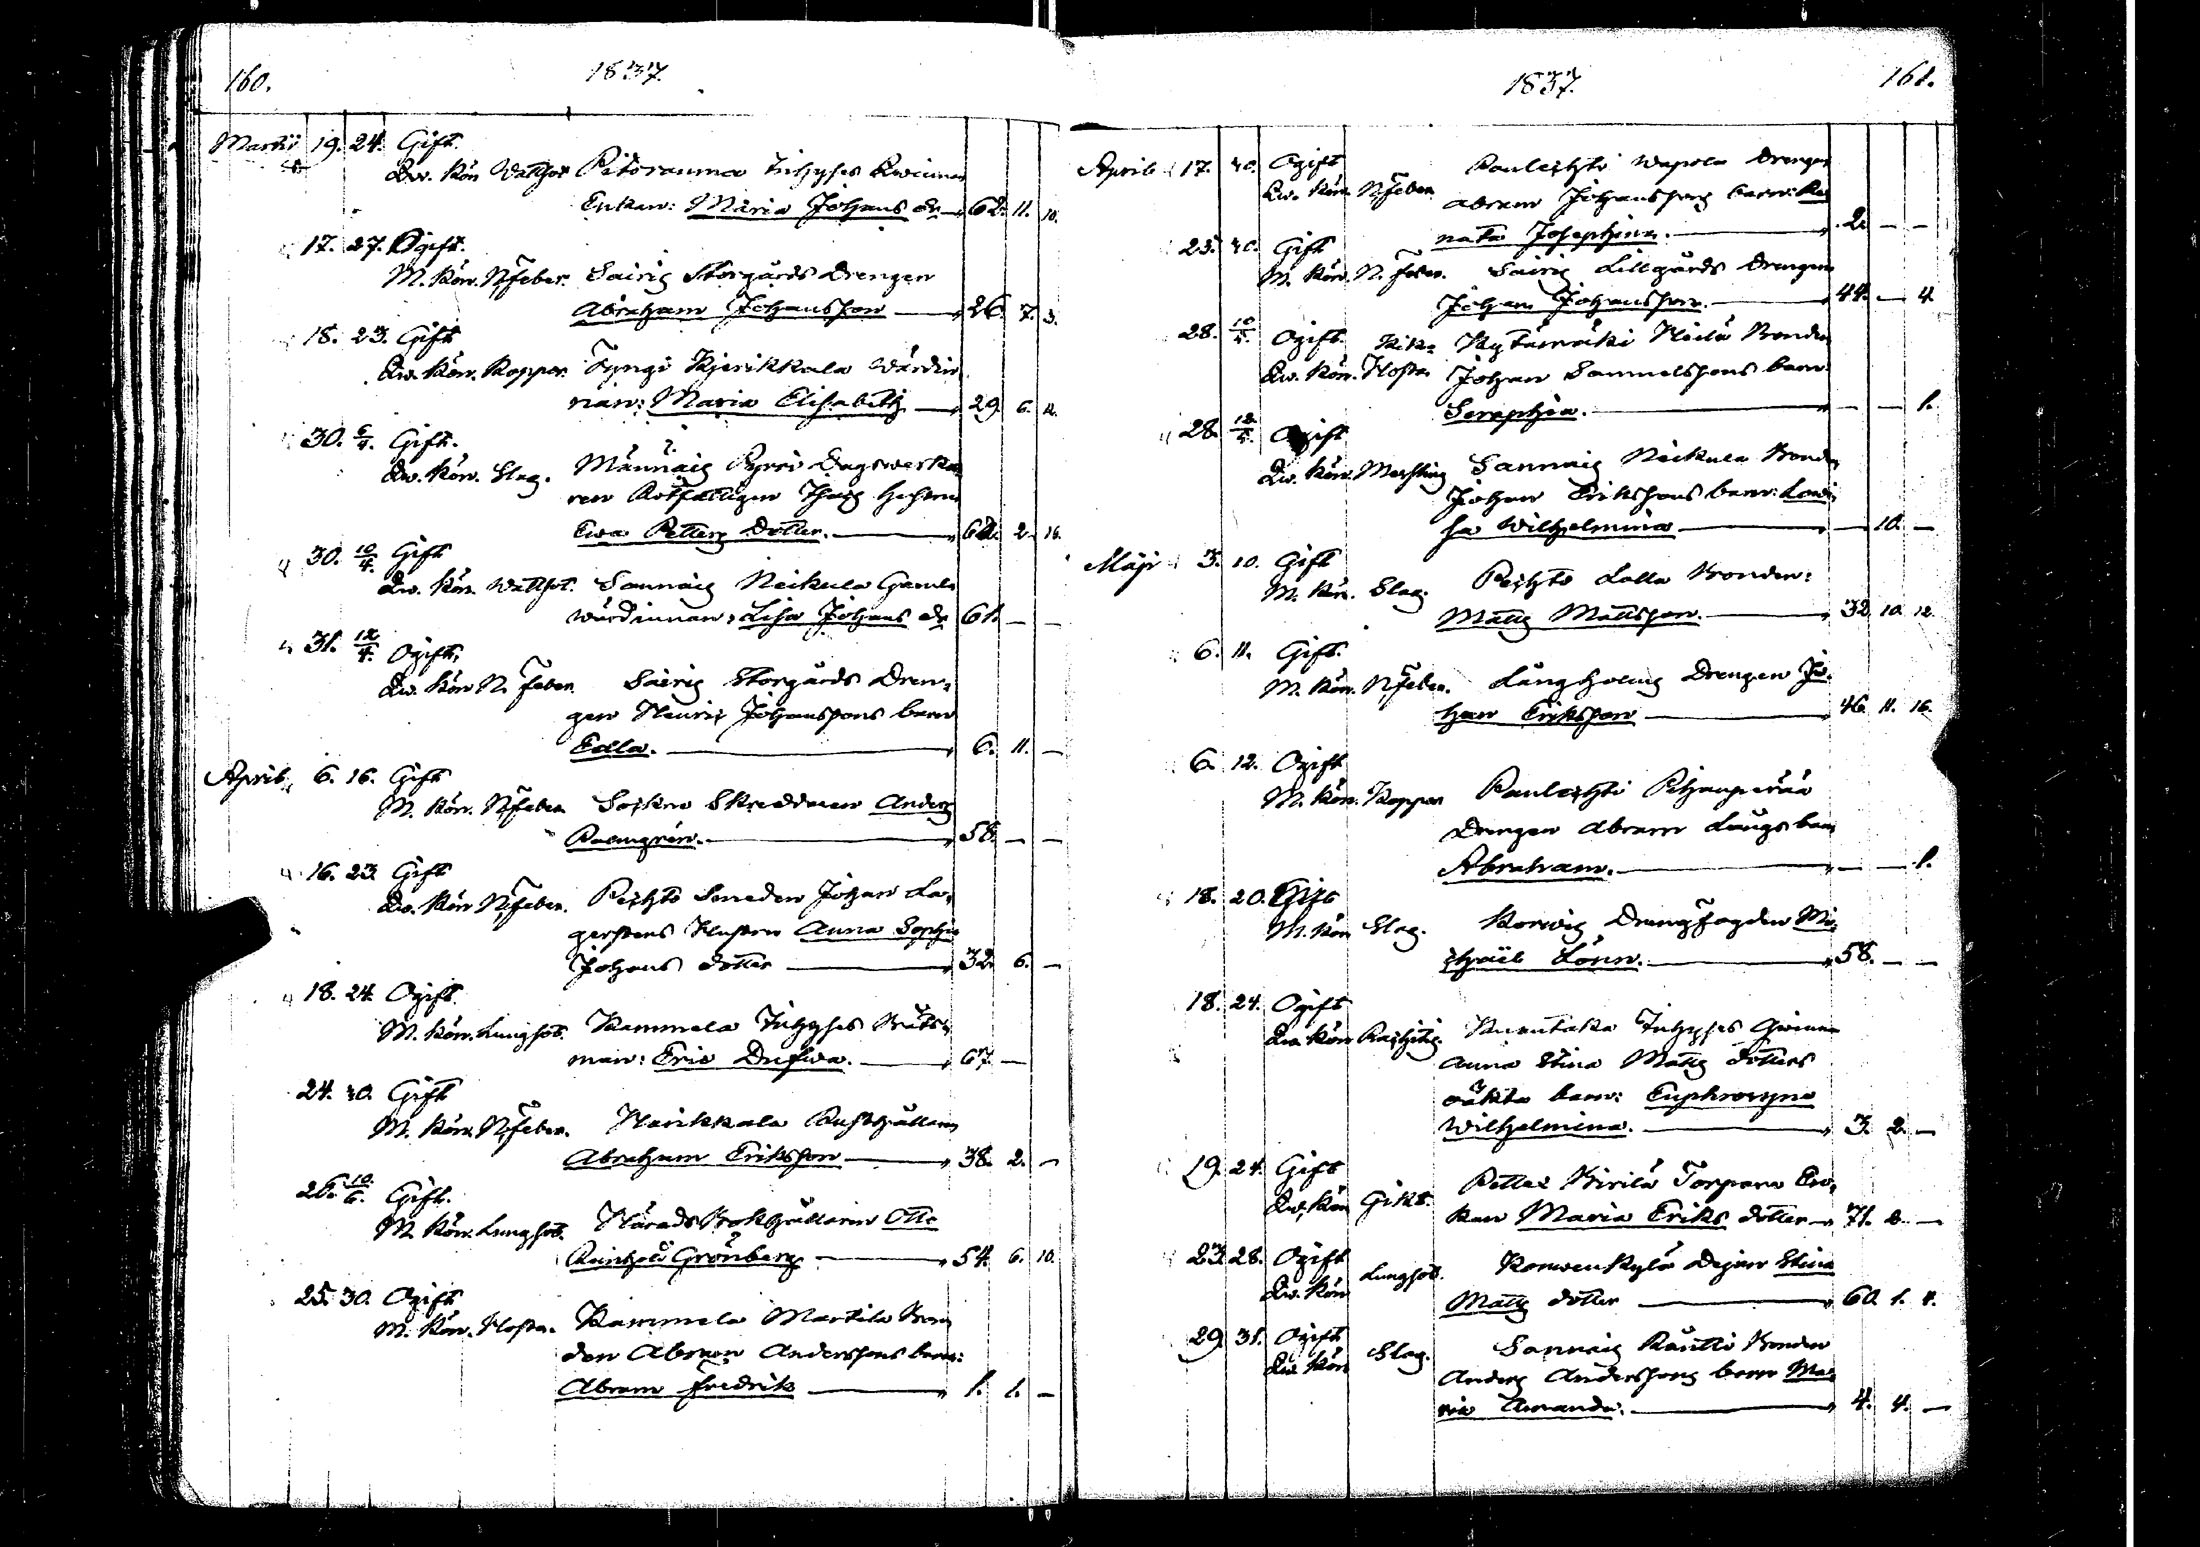 160.
1837.
Martii 19. 24. Gift.
Qw. Kön Wattsot Pitkrauma Inhyses Qwinnan
Enkan: Maria Johans dr 62. 11. 10.
17. 27. Ogift.
M. Kön. N. feber. Sairis Storgårds Drengen
Abraham Johansson 26. 7. 3.
18. 23. Gift
Qw. Kön. Koppor. Tyngi Kjerikkala Wärdin
nan: Maria Elisabeth 29 6. 12.
30. 6/4. Gift.
Qw. Kön. Slag. Männäis Dagswerka
ren Rotfattigen Hustru
Ewa Petters Dotter. 62. 2. 16.
30. 10/4. Gift
Qw. Kön. Wattsot. Sannäis Neikula Gamla
wärdinnan, Lisa Johans dr 61. — —
31. 12/4. Ogift,
Qw. Kön N. feber. Sairis Storgårds Dren-
gen Henric Johanssons barn
Edla. 6. 11. —
April 6. 16. Gift
M. Kön. N. feber. Skreddaren Anders
Palmgrén. 58. — —
16. 23. Gift
Qw. Kön N. feber. Pejhto Smeden Johan La-
gerstens Hustru Anna Sophia
Johans dotter 32. 6. —
18. 24. Ogift.
M. Kön. Lungsot. Kammela Inhyses Båts-
man: Eric Dufwa. 67. —
24. 30. Gift
M. Kön. N. feber. Harikkala
Abraham Eriksson 38. 2. —
26. 10/6. Gift.
M. Kön. Lungsot. Härads Bokhållaren Otto
Reinhold Grönberg 54. 6. 10.
25. 30. Ogift
M. Kön. Hosta. Kammela Martila Bon
den Abram Anderssons barn:
Abram Fredrik 1. 1. —
1837.
161.
April 17. 30. Ogift
Qw. Kön. N. feber. Paulejhti Wapola Drengen
Abram Johanssons barn: Re
nata Josephina. 2. — —
25. 30. Gift
M. Kön. N. feber. Sairis Lillgårds Drengen
Johan Johansson. 44. — 4.
28. 10/5. Ogift Kik-
Qw. Kön. Hosta Heilä Bonden
Johan Samuelssons barn
Seraphia. — — 1.
28. 12/5. Ogift
Qw. Kön. Messling Sannäis Neikula Bonden
Johan Erikssons barn: Lovi
sa Wilhelmina — 10. —
Maji 3. 10. Gift
M. Kön. Slag. Pejhto Lalla Bonden:
Matts Mattsson. 32. 10. 12.
6. 11. Gift.
M. Kön. N. feber. Långholms Drengen Jo-
han Eriksson 46. 11. 16.
6. 12. Ogift
M. Kön. Koppor Paulejhti Pihanperää
Drengen Abram Längs barn
Abraham. — — 1.
18. 20. Gift
M. Kön Slag. Korwis Drengfogden Mi-
chaël Lönn. 58. — —
18. 24. Ogift
Qw. Kön Rachitis. Inhyses Qwinnan
Anna Stina Matts dotters
oäkta barn: Euphrosyne
Wilhelmina. 3. 2. —
19. 24. Gift
Qw. Kön Gikt. Pettes Kirilä Torpare En-
kan Maria Eriks dotter 71. 2. —
23. 28. Ogift
Qw. Kön Lungsot. Korwenkylä Dejan Stina
Matts dotter 60. 1. 4.
29. 31. Ogift
Qw. Kön Slag. Sannäis Knutti Bonden
Anders Anderssons barn Ma-
ria Amanda. 4. 4. —